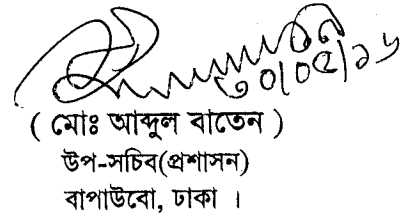 ৩০/০৫/১৬
( মোঃ আব্দুল বাতেন )
উপ-সচিব(প্রশাসন)
বাপাউবো, ঢাকা ।